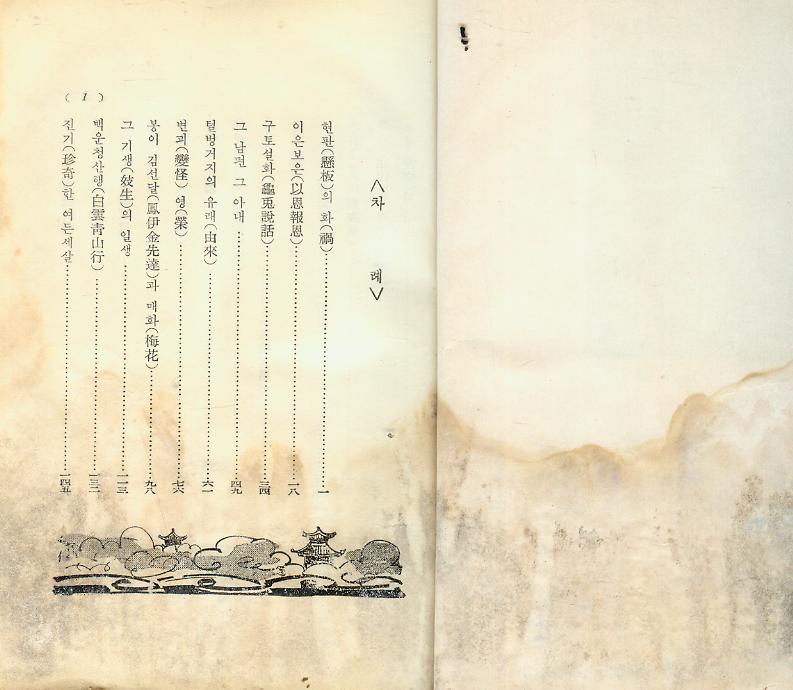 <차 례>
현판(懸板)의 화(禍)……一
이은보은(以恩報恩)……一八
구토설화(龜兎說話)……三四
그 남편 그 아내……四九
털벙거지의 유래(由來)……六一
변괴(變怪) 영(榮)……七六
봉이 김선달(鳳伊金先達)과 매화(梅花)……九八
그 기생(妓生)의 일생……一一三
백운청산행(白雲靑山行)……一三二
진기(珍奇)한 여든세살……一四五
( 1 )